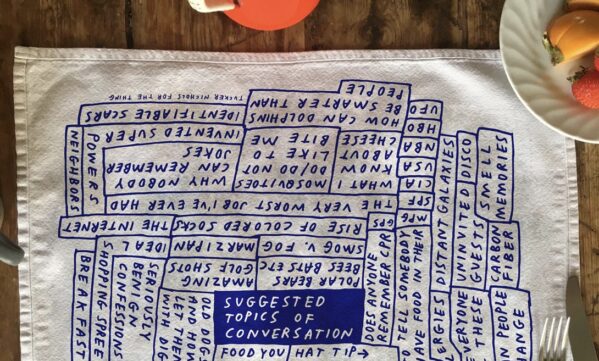 SUGGESTED
TOPICS OF
CONVERSATION
FOOD YOU
HAT TIP →
POLAR BEARS
BEES BATS ETC
AMAZING
GOLF SHOTS
SMOG V. FOG
MARZIPAN
IDEAL
SHOPPING SPREE
RISE OF COLORED SOCKS
THE INTERNET
THE VERY WORST JOB I'VE EVER HAD
WHAT I
KNOW
ABOUT
CHEESE
MOSQUITOES
DO/DO NOT
LIKE TO
BITE ME
WHY NOBODY
CAN REMEMBER
JOKES
INVENTED SUPER
POWERS
HOW CAN DOLPHINS
BE SMARTER THAN
PEOPLE
IDENTIFIABLE SCARS
TUCKER NICHOLS FOR THE THING
NEIGHBORS
BREAKFAST
SERIOUSLY
BENIGN
CONFESSIONS
OLD DOG
AND HOW
LET THEM
WITH DIG
GPS
MPG
SPF
CIA
USA
NBA
HBO
UFO
DOES ANYONE
REMEMBER CPR
TELL SOMEBODY
HAVE FOOD IN THEIR
ERGIES
DISTANT GALAXIES
UNINVITED
GUESTS
DISCO
EVERYONE
THESE
SMELL
MEMORIES
CARBON
FIBER
N PEOPLE
ANGE